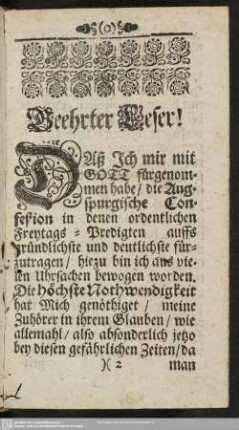 §(o)§
Geehrter Leser!
DAß Ich mir mit
GOTT fürgenom-
men habe / die Aug-
spurgische Con-
fession in denen ordentlichen
Freytags-Predigten auffs
gründlichste und deutlichste für-
zutragen / hiezu bin ich aus vie-
len Uhrsachen bewogen worden.
Die höchste Nothwendigkeit
hat Mich genöthiget / meine
Zuhörer in ihrem Glauben / wie
allemahl / also absonderlich jetzo
bey diesen gefährlichen Zeiten / da
)( 2 man